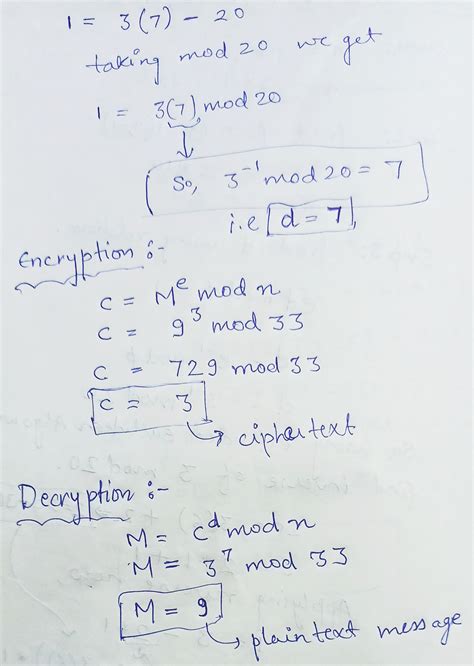 1 = 3(7) - 20
taking mod 20 we get
1 = 3(7) mod 20
So, 3⁻¹ mod 20 = 7
i.e d = 7
Encryption :-
C = Mᵉ mod n
C = 9³ mod 33
C = 729 mod 33
C = 3
ciphertext
Decryption :-
M = Cᵈ mod n
M = 3⁷ mod 33
M = 9
plaintext message